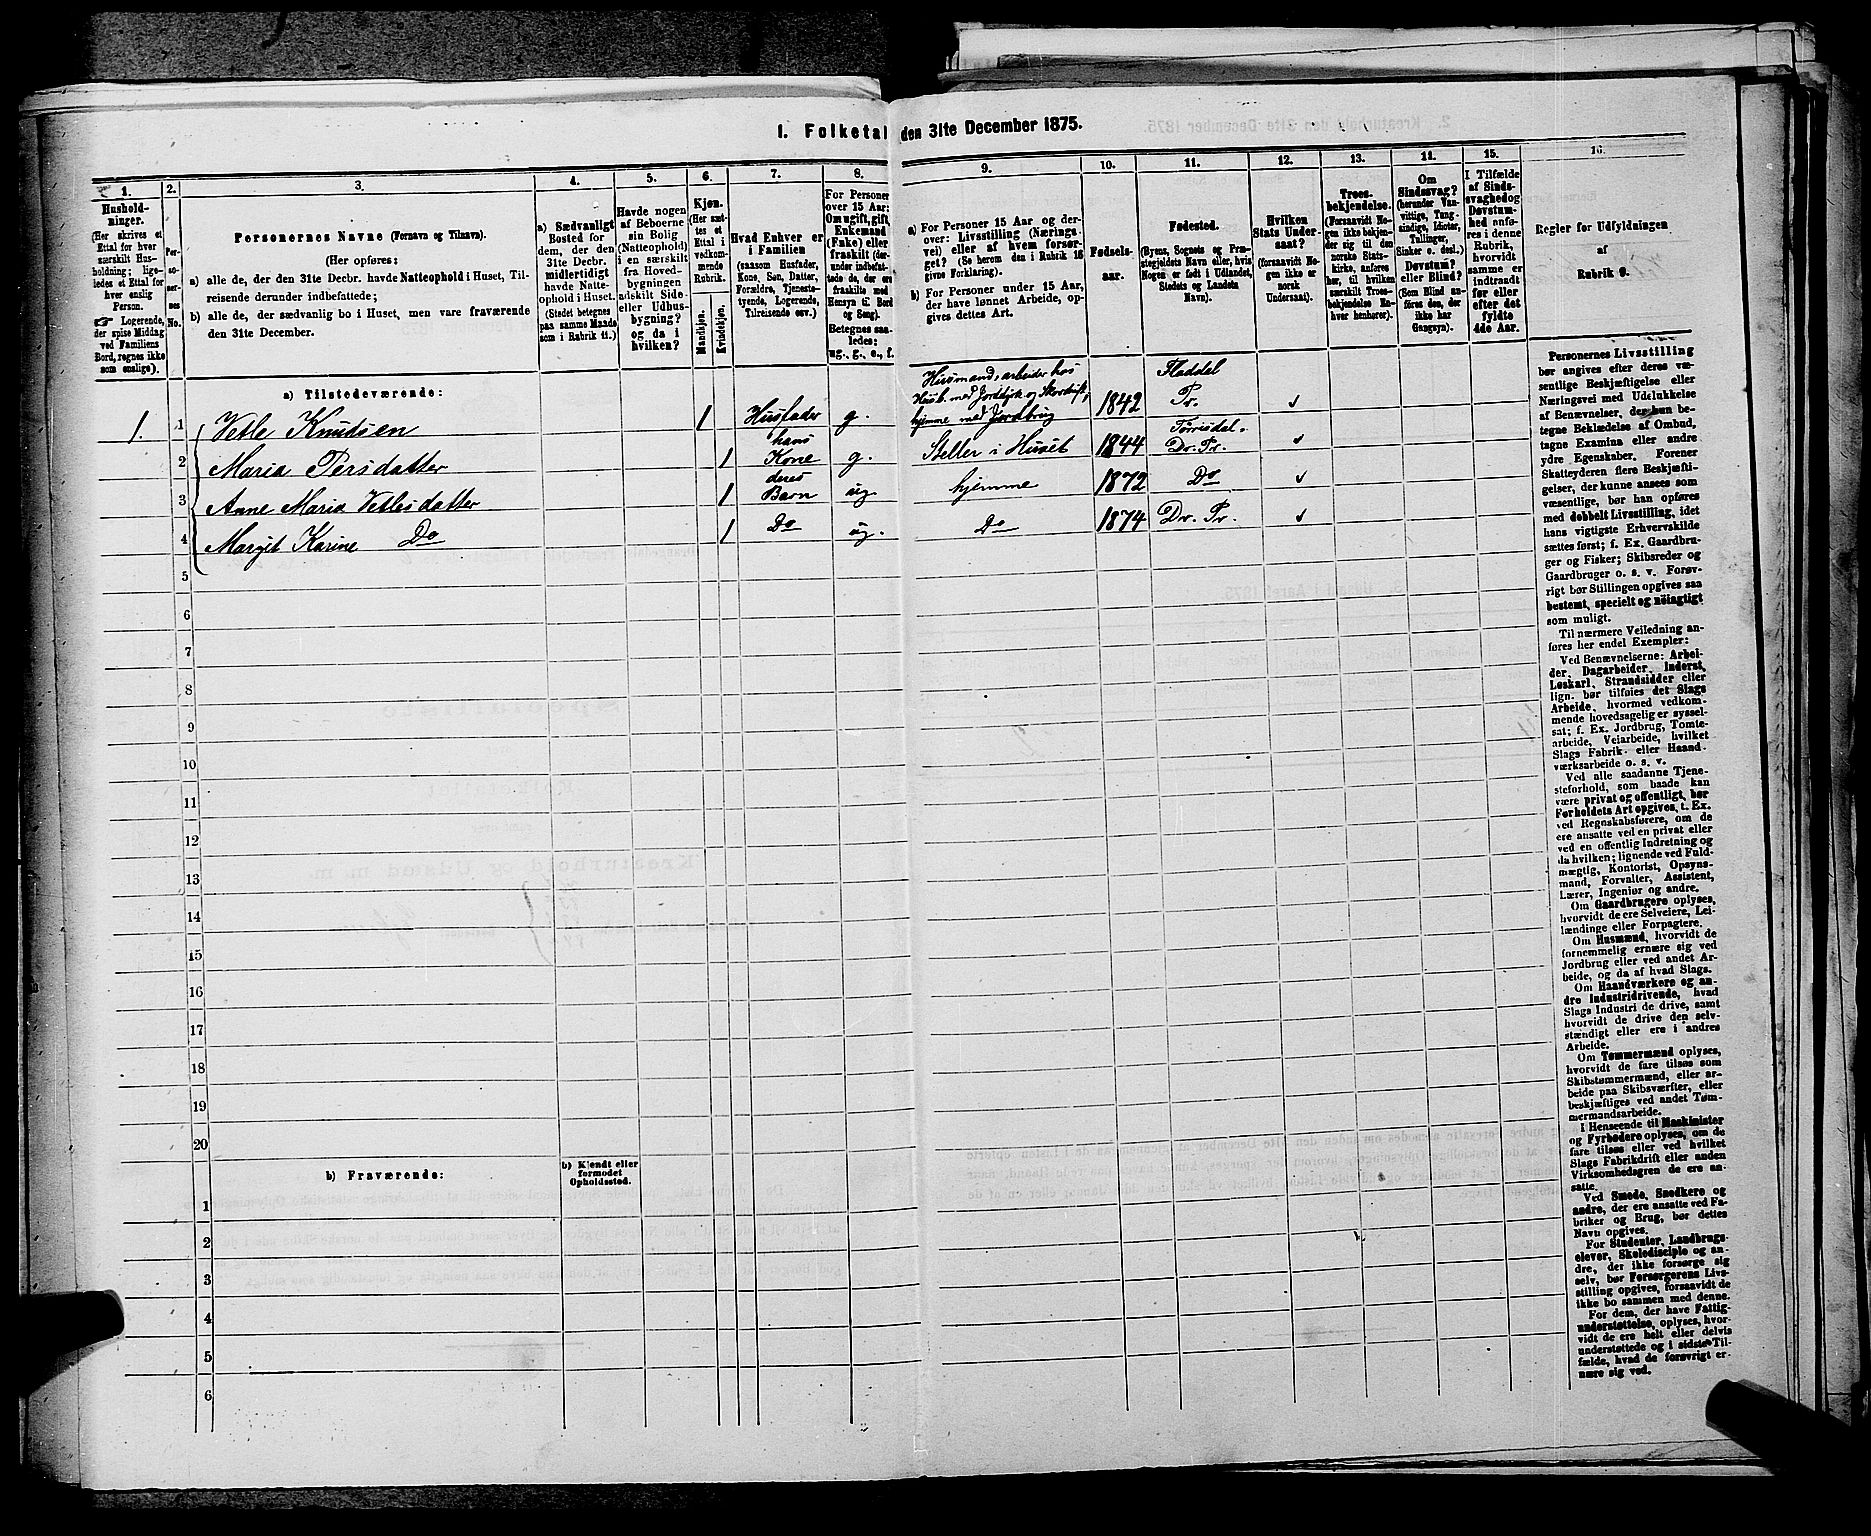 1. Folketal den 31te December 1875.
1.
Hushold-
ninger.
(Her skrives et
Ettal for hver
særskilt Hus-
holdning; lige-
ledes et Ettal for
hver enslig
Person.
☞ Logerende,
der spise Middag
ved Familiens
Bord, regnes ikke
som enslige).
2.
Per-
so-
ner-
nes
No.
3.
Personernes Navne (Fornavn og Tilnavn).
(Her opføres:
a) alle de, der den 31te Decbr. havde Natteophold i Huset, Til-
reisende derunder indbefattede;
b) alle de, der sædvanlig bo i Huset, men vare fraværende
den 31te December.
4.
a) Sædvanligt
Bosted for
dem, der den
31te Decbr.
midlertidigt
havde Natte-
ophold i Huset.
(Stedet betegnes
paa samme Maade
som i Rubrik 11.)
5.
Havde nogen
af Beboerne
sin Bolig
(Natteophold)
i en særskilt
fra Hoved-
bygningen
adskilt Side-
eller Udhus-
bygning?
og da i
hvilken?
6.
Kjøn.
(Her sæt-
tes et
Ettal i
vedkom-
mende
Rubrik.
Mandkjøn.
Kvindekjøn.
7.
Hvad Enhver er
i Familien
(saasom Husfader,
Kone, Søn, Datter,
Forældre, Tjeneste-
tyende, Logerende,
Tilreisende osv.)
8.
For Personer
over 15 Aar:
Om ugift, gift,
Enkemand
(Enke) eller
fraskilt (der-
under indbefat-
tede de, der ere
fraskilte med
Hensyn til Bord
og Seng).
Betegnes saa-
ledes:
ug., g., e., f.
9.
a) For Personer 15 Aar og der-
over: Livsstilling (Nærings-
vei) eller af hvem forsør-
get? (Se herom den i Rubrik 16
givne Forklaring).
b) For Personer under 15 Aar,
der have lønnet Arbeide, op-
gives dettes Art.
10.
Fødsels-
aar.
11.
Fødested.
(Byens, Sognets og Præ-
stegjeldets Navn eller, hvis
Nogen er født i Udlandet,
Stedets og Landets
Navn).
12.
Hvilken
Stats Under-
saat?
(forsaavidt No-
gen ikke er
norsk
Undersaat).
13.
Troes-
bekjendelse.
(Forsaavidt No-
gen ikke bekjen-
der sig til den
norske Stats-
kirke, anføres
her, til hvilken
særskilt Troes-
bekjendelse En-
hver henhører).
14.
Om
Sindssvag?
(herunder Van-
vittige, Tung-
sindige, Idioter,
Tullinger,
Sinker o. desl.)
Døvstum?
eller Blind?
(Som Blind an-
føres den, der
ikke har
Gangsyn).
15.
I Tilfælde
af Sinds-
svaghed og
Døvstum-
hed anfø-
res i denne
Rubrik,
hvorvidt
samme er
indtraadt
før eller
efter det
fyldte
4de Aar.
16.
Regler for Udfyldningen
af
Rubrik 9.
a) Tilstedeværende:
1. 1 Vetle Knudsen 1 Husfader g. Husmand, arbeider hos Husb. med Jorddyrk og Skovdrift, hjemme med Jordbrug 1842 Fladdal Pr.
2 Maria Persdatter 1 hans Kone g. Steller i Huset 1844 Tørrisdal. Dr. Pr.
3 Anne Maria Vetlesdatter 1 deres Barn ug. hjemme 1872 Do
4 Margit Karine Do 1 Do ug. Do 1874 Dr. Pr.
5
6
7
8
9
10
11
12
13
14
15
16
17
18
19
20
b) Fraværende:
b) Kjendt eller
formodet
Opholdssted.
1
2
3
4
5
6
Personernes Livsstilling
bør angives efter deres væ-
sentlige Beskjæftigelse eller
Næringsvei med Udelukkelse
af Benævnelser, der kun be-
tegne Beklædelse af Ombud,
tagne Examina eller andre
ydre Egenskaber. Forener
Skatteyderen flere Beskjæfti-
gelser, der kunne ansees som
væsentlige, bør han opføres
med dobbelt Livsstilling, idet
hans vigtigste Erhvervskilde
sættes først; f. Ex. Gaardbru-
ger og Fisker; Skibsreder og
Gaardbruger o. s. v. Forøv-
rigt bør Stillingen opgives saa
bestemt, specielt og nøiagtigt
som muligt.
Til nærmere Veiledning an-
føres her endel Exempler:
Ved Benævnelserne: Arbei-
der, Dagarbeider, Inderst,
Løskarl, Strandsidder eller
lign. bør tilføies det Slags
Arbeide, hvormed vedkom-
mende hovedsagelig er syssel-
sat; f. Ex. Jordbrug, Tomte-
arbeide, Veiarbeide, hvilket
Slags Fabrik- eller Haand-
værksarbeide o. s. v.
Ved alle saadanne Tjene-
steforhold, som baade kan
være privat og offentligt, bør
Forholdets Art opgives, t. Ex.
ved Regnskabsførere, om de
ere ansatte ved en privat eller
ved en offentlig Indretning og
da hvilken; lignende ved Fuld-
mægtig, Kontorist, Opsyns-
mand, Forvalter, Assistent,
Lærer, Ingeniør og andre.
Om Gaardbrugere oplyses,
hvorvidt de ere Selveiere, Lei-
lændinge eller Forpagtere.
Om Husmænd, hvorvidt de
fornemmelig ernære sig ved
Jordbrug eller ved andet Ar-
beide, og da af hvad Slags.
Om Haandværkere og an-
dre Industridrivende, hvad
Slags Industri de drive, samt
hvorvidt de drive den selv-
stændigt eller ere i andres
Arbeide.
Om Tømmermænd oplyses,
hvorvidt de fare tilsøs som
Skibstømmermænd, eller ar-
beide paa Skibsværfter, eller
beskjæftiges ved andet Tøm-
mermandsarbeide.
I Henseende til Maskinister
og Fyrbødere oplyses, om de
fare tilsøs eller ved hvilket
Slags Fabrikdrift eller anden
Virksomhedsgren de ere an-
satte.
Ved Smede, Snedkere og
andre, der ere ansatte ved Fa-
briker og Brug, bør dettes
Navn opgives.
For Studenter, Landbrugs-
elever, Skoledisciple og an-
dre, der ikke forsørge sig
selv, bør Forsørgerens Livs-
stilling opgives, forsaavidt de
ikke bo sammen med denne.
For dem, der have Fattig-
understøttelse, oplyses, hvor-
vidt de ere helt eller delvis
understøttede og i sidste Til-
fælde, hvad de forøvrigt er-
nære sig ved.